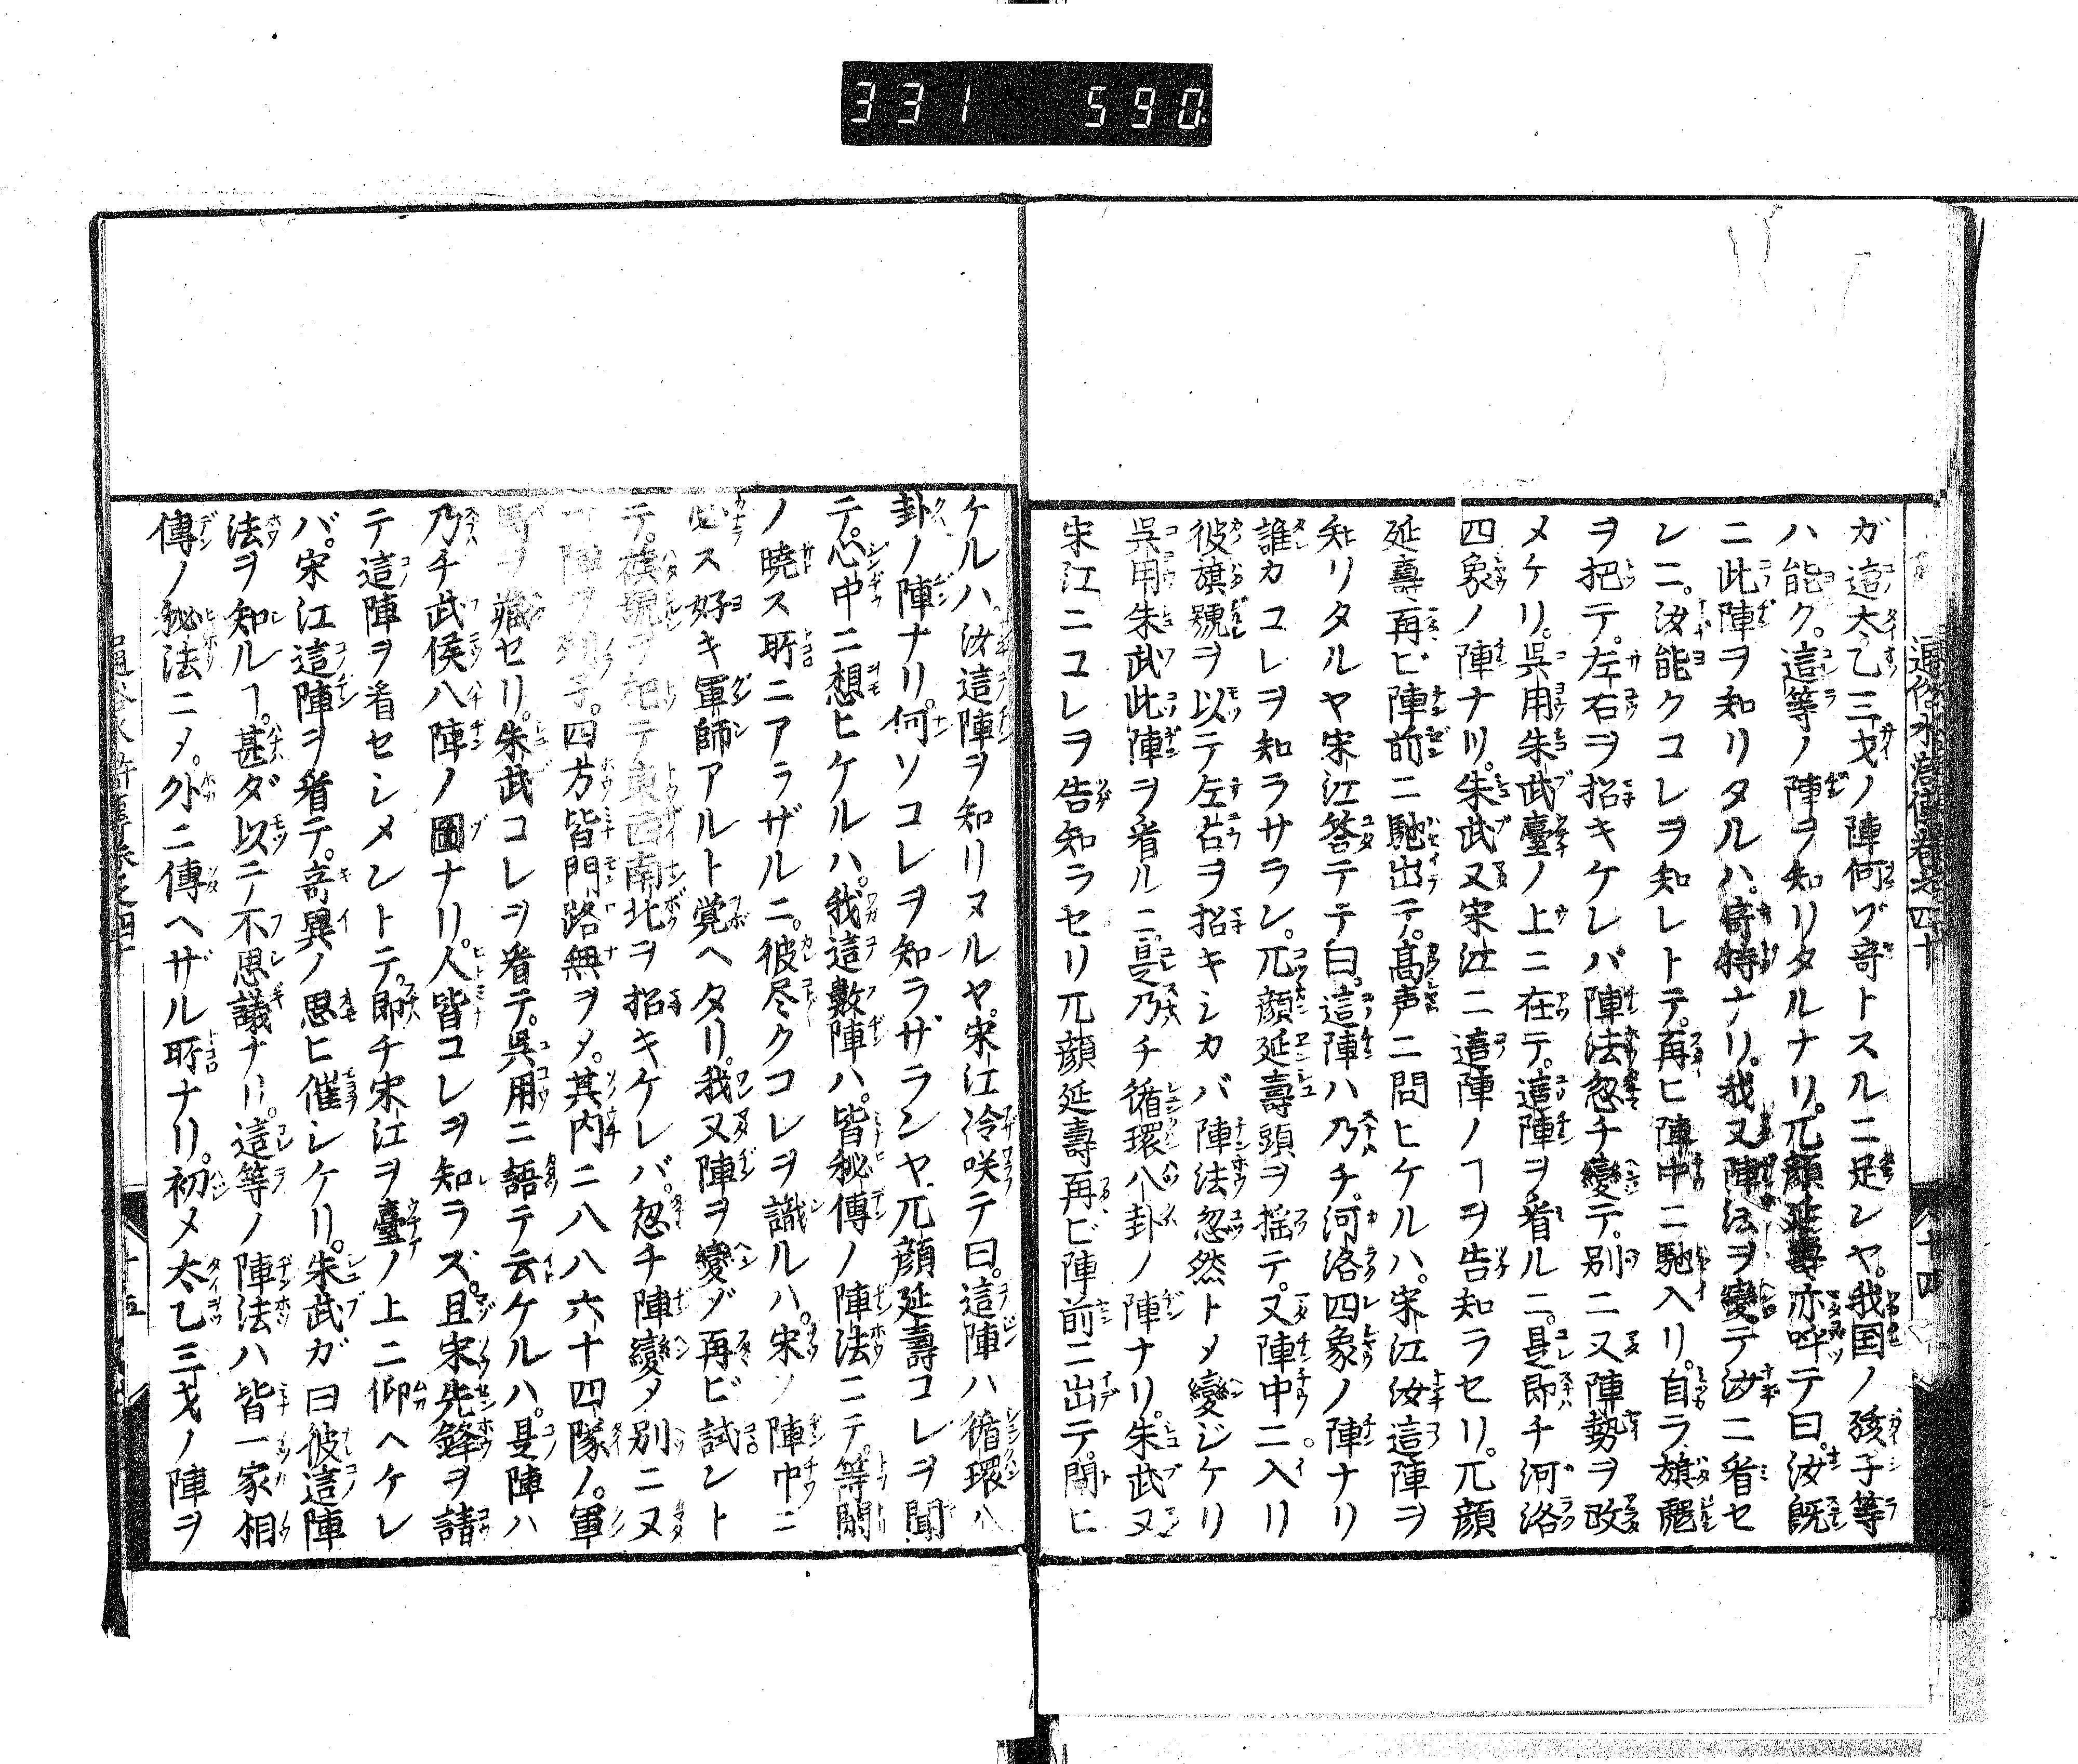 331 590
ガ這太乙三戈ノ陣何ゾ竒トスルニ足ンヤ。我国ノ孩子等
ハ能ク。這等ノ陣ヲ知リタルナリ。兀顔延壽亦呼テ曰。汝既
ニ此陣ヲ知リタルハ。竒特ナリ。我又陣法ヲ變テ汝ニ看セ
レニ。汝能クコレヲ知レトテ。再ヒ陣中ニ馳入リ。自ラ旗號
ヲ把テ。左右ヲ招キケレバ陣法忽チ變テ。別ニ又陣勢ヲ改
メケリ。呉用朱武臺ノ上ニ在テ。這陣ヲ看ルニ。是即チ河洛
四象ノ陣ナリ。朱武又宋江ニ這陣ノヿヲ告知ラセリ。兀顔
延壽再ビ陣前ニ馳出テ。髙声ニ問ヒケルハ。宋江汝這陣ヲ
知リタルヤ宋江答テテ曰。這陣ハ乃チ。河洛四象ノ陣ナリ
誰カコレヲ知ラサラン。兀顔延壽頭ヲ揺テ。又陣中ニ入リ
彼旗號ヲ以テ左右ヲ招キシカバ陣法忽然トメ變ジケリ
呉用朱武此陣ヲ看ルニ。是乃チ循環八卦ノ陣ナリ。朱武又
宋江ニコレヲ告知ラセリ兀顔延壽再ビ陣前ニ出テ。問ヒ
ケルハ。汝這陣ヲ知リヌルヤ。宋江冷咲テ曰。這陣ハ循環八
卦ノ陣ナリ。何ソコレヲ知ラザランヤ兀顔延壽コレヲ聞
テ。心中ニ想ヒケルハ。我這數陣ハ。皆秘傳ノ陣法ニテ。等閑
ノ曉ス所ニアラザルニ。彼尽クコレヲ識ルハ。宋ノ陣中ニ
必ス好キ軍師アルト覚ヘタリ。我又陣ヲ變ゾ再ビ試ント
テ。旗號ヲ把テ東西南北ヲ招キケレバ。忽チ陣變タ別ニヌ
陣ヲ列子。四方皆門路無ヲメ。其内ニ八八六十四隊ノ。軍
馬ヲ藏セリ。朱武コレヲ看テ。呉用ニ語テ云ケルハ。是陣ハ
乃チ武侯八陣ノ圖ナリ。人皆コレヲ知ラズ。且宋先鋒ヲ請
テ這陣ヲ看セシメントテ。即チ宋江ヲ臺ノ上ニ仰ヘケレ
バ。宋江這陣ヲ看テ。竒異ノ思ヒ催シケリ。朱武ガ曰彼這陣
法ヲ知ルヿ。甚ダ以テ不思議ナリ。這等ノ陣法ハ皆一家相
傳ノ秘法ニメ。外ニ傳ヘザル所ナリ。初メ太乙三戈ノ陣ヲ